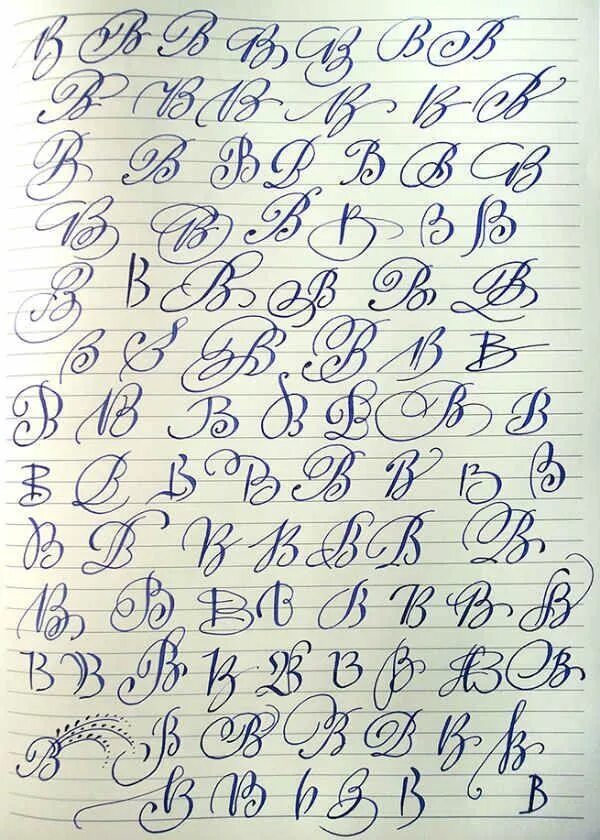 B B B B B B B
B B B B B B
B B B B B B B
B B B B B B
B B B B B B
B B B B B B
B B B B B B B
B B B B B B B B
B B B B B B B
B B B B B B B B
B B B B B B B B B
B B B B B B B
B B B B B B